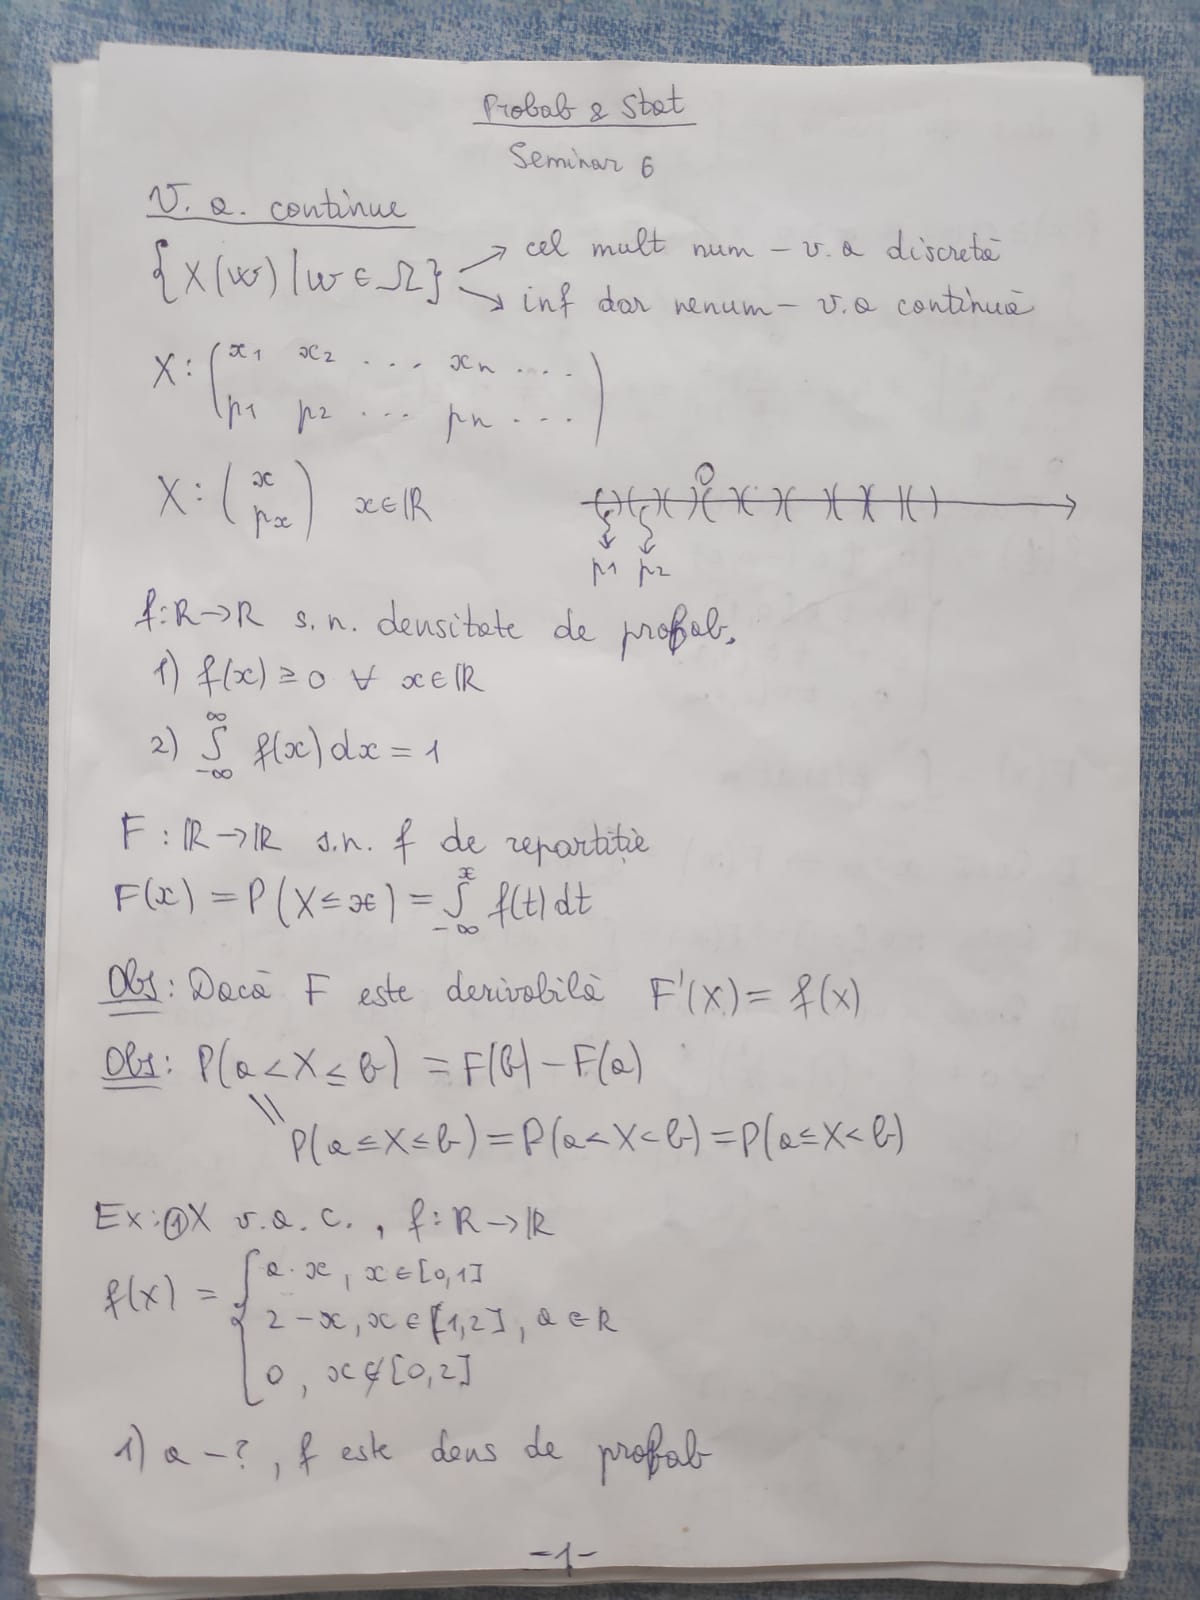 Probab & Stat
Seminar 6
V. a. continue
{X(w) | w ∈ Ω} → cel mult num – v. a discretă
→ inf dar nenum – v. a continuă
X : ( x1 x2 ... xn ... )
( p1 p2 ... pn ... )
X : ( x ) x ∈ ℝ
( px )
0
p1 p2
f: ℝ → ℝ s. n. densitate de probab.
1) f(x) ≥ 0 ∀ x ∈ ℝ
2) ∫_{-∞}^{∞} f(x) dx = 1
F : ℝ → ℝ s.n. f de repartiție
F(x) = P(X ≤ x) = ∫_{-∞}^{x} f(t) dt
Obs: Dacă F este derivabilă F'(x) = f(x)
Obs: P(a < X ≤ b) = F(b) – F(a)
= P(a ≤ X ≤ b) = P(a < X < b) = P(a ≤ X < b)
Ex: ① X v. a. c. , f: ℝ → ℝ
f(x) = { a · x, x ∈ [0,1]
2 – x, x ∈ [1,2] , a ∈ ℝ
0 , x ∉ [0,2]
1) a – ? , f este dens de probab
-1-